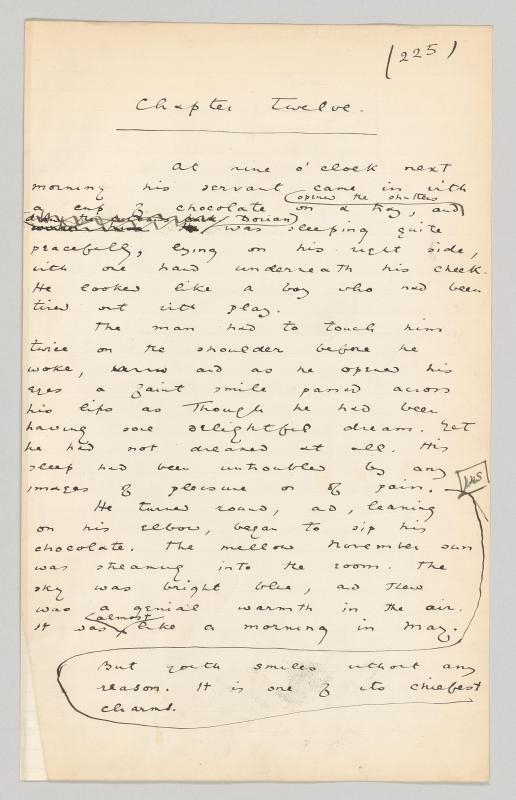 (225)
Chapter Twelve.
At nine o'clock next
morning his servant came in with
opened the shutters
a cup of chocolate on a tray, and
Dorian
was sleeping quite
peacefully, lying on his right side,
with one hand underneath his cheek.
He looked like a boy who had been
tired out with play.
The man had to touch him
twice on the shoulder before he
woke, and as he opened his
eyes a faint smile passed across
his lips as though he had been
having some delightful dream. Yet
he had not dreamed at all. His
sleep had been untroubled by any
images of pleasure or of pain.
He turned round, and, leaning
on his elbow, began to sip his
chocolate. The mellow November sun
was streaming into the room. The
sky was bright blue, and there
was a genial warmth in the air.
almost
It was like a morning in May.
But youth smiles without any
reason. It is one of its chiefest
charms.